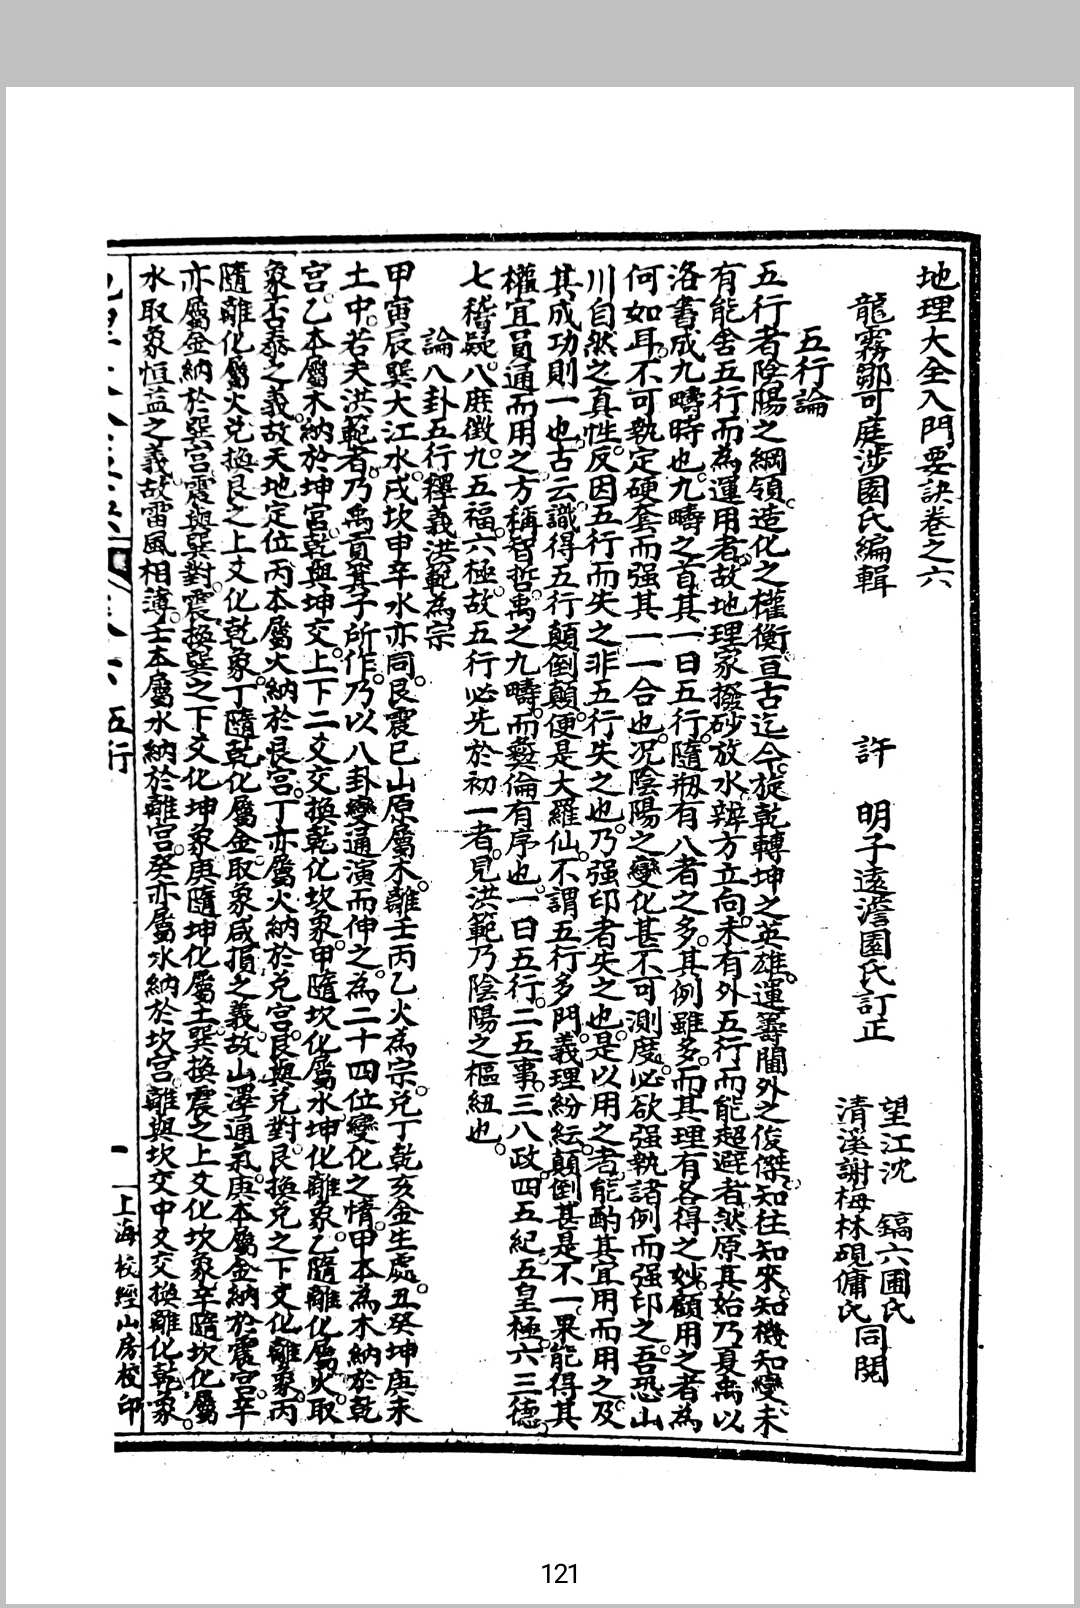 地理大全入門要訣卷之六
龍霧鄒可庭涉園氏編輯
許 明子遠澹園氏訂正
望江沈 鎬六圃氏
清溪謝梅林硯傭氏
同閱
五行論
五行者陰陽之綱領。造化之權衡。亘古迄今。旋乾轉坤之英雄。運籌閫外之俊傑。知往知來。知機知變。未
有能舍五行而為運用者。故地理家撥砂放水。辨方立向。未有外五行而能超避者。然原其始。乃夏禹以
洛書成九疇時也。九疇之首。其一曰五行。隨刱有八者之多。其例雖多。而其理有各得之妙。顧用之者為
何如耳。不可執定硬套而强其一一合也。况陰陽之變化。甚不可測度。必欲强執諸例而强印之。吾恐山
川自然之真性。反因五行而失之。非五行失之也。乃强印者失之也。是以用之者。能酌其宜用而用之。及
其成功則一也。古云。識得五行顛倒顛。便是大羅仙。不謂五行多門。義理紛紜。顛倒甚是不一。果能得其
權宜員通而用之。方稱智哲。禹之九疇。而彝倫有序也。一曰五行。二五事。三八政。四五紀。五皇極。六三德。
七稽疑。八庶徵。九五福。六極。故五行必先於初一者。見洪範乃陰陽之樞紐也。
論八卦五行釋義洪範為宗
甲寅辰巽大江水。戌坎申辛水亦同。艮震巳山原屬木。離壬丙乙火為宗。兑丁乾亥金生處。丑癸坤庚未
土中。若夫洪範者。乃禹貢箕子所作。乃以八卦變通演而伸之。為二十四位變化之情。甲本為木。納於乾
宮。乙本屬木。納於坤宮。乾與坤交。上下二爻交換。乾化坎象。甲隨坎化屬水。坤化離象。乙隨離化屬火。取
象否泰之義。故天地定位。丙本屬火。納於艮宮。丁亦屬火。納於兑宮。艮與兑對。艮換兑之下爻化離象。丙
隨離化屬火。兑換艮之上爻化乾象。丁隨乾化屬金。取象咸損之義。故山澤通氣。庚本屬金。納於震宮。辛
亦屬金。納於巽宮。震與巽對。震換巽之下爻化坤象。庚隨坤化屬土。巽換震之上爻化坎象。辛隨坎化屬
水。取象恒益之義。故雷風相薄。壬本屬水。納於離宮。癸亦屬水。納於坎宮。離與坎交。中爻交換。離化乾象。
五行
一
上海校經山房校印
121